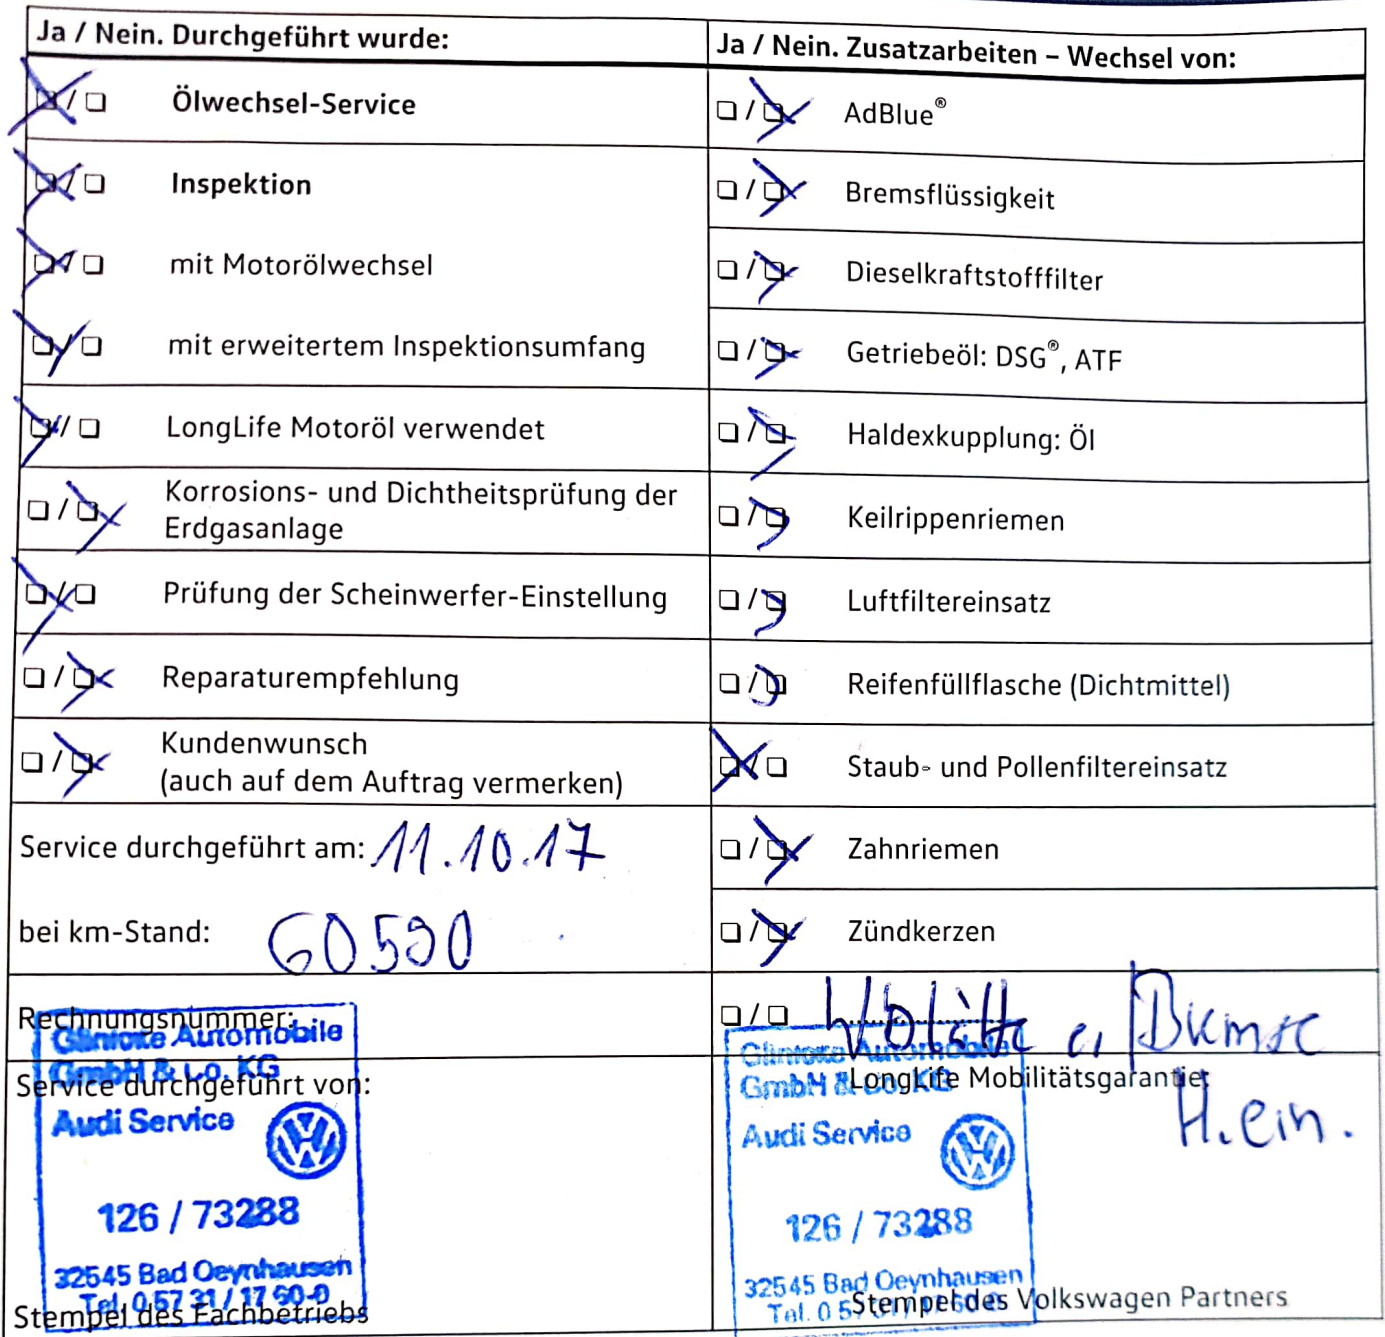 Ja / Nein. Durchgeführt wurde:
❏ / ❏ Ölwechsel-Service
❏ / ❏ Inspektion
❏ / ❏ mit Motorölwechsel
❏ / ❏ mit erweitertem Inspektionsumfang
❏ / ❏ LongLife Motoröl verwendet
❏ / ❏ Korrosions- und Dichtheitsprüfung der
Erdgasanlage
❏ / ❏ Prüfung der Scheinwerfer-Einstellung
❏ / ❏ Reparaturempfehlung
❏ / ❏ Kundenwunsch
(auch auf dem Auftrag vermerken)
Service durchgeführt am: 11.10.17
bei km-Stand: 60590
Rechnungsnummer:
Service durchgeführt von:
Glinicke Automobile
GmbH & Co. KG
Audi Service
126 / 73288
32545 Bad Oeynhausen
Tel. 0 57 31 / 17 60-0
Stempel des Fachbetriebs
Ja / Nein. Zusatzarbeiten – Wechsel von:
❏ / ❏ AdBlue®
❏ / ❏ Bremsflüssigkeit
❏ / ❏ Dieselkraftstofffilter
❏ / ❏ Getriebeöl: DSG®, ATF
❏ / ❏ Haldexkupplung: Öl
❏ / ❏ Keilrippenriemen
❏ / ❏ Luftfiltereinsatz
❏ / ❏ Reifenfüllflasche (Dichtmittel)
❏ / ❏ Staub- und Pollenfiltereinsatz
❏ / ❏ Zahnriemen
❏ / ❏ Zündkerzen
❏ / ❏ Bremse
H. ein.
LongLife Mobilitätsgarantie:
Glinicke Automobile
GmbH & Co. KG
Audi Service
126 / 73288
32545 Bad Oeynhausen
Tel. 0 57 31 / 17 60-0
Stempel des Volkswagen Partners